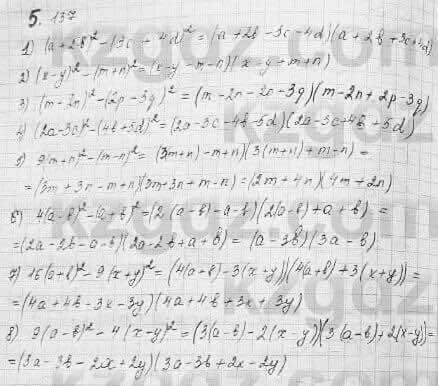 5. 137
1) (a+2b)² - (3c + 4d)² = (a+2b-3c-4d)(a+2b+3c+4d)
2) (x-y)² - (m+n)² = (x-y-m-n)(x-y+m+n)
3) (m-2n)² - (2p-3q)² = (m-2n-2p-3q)(m-2n+2p-3q)
4) (2a-3c)² - (4b+5d)² = (2a-3c-4b-5d)(2a-3c+4b+5d)
5) 9(m+n)² - (m-n)² = (3m+n)-m+n)(3(m+n)+m-n) =
= (3m+3n-m+n)(3m+3n+m-n) = (2m+4n)(4m+2n)
6) 4(a-b)² - (a+b)² = (2(a-b)-a-b)(2(a-b)+a+b) =
= (2a-2b-a-b)(2a-2b+a+b) = (a-3b)(3a-b)
7) 16(a+b)² - 9(x+y)² = (4(a+b)-3(x+y))(4(a+b)+3(x+y)) =
= (4a+4b-3x-3y)(4a+4b+3x+3y)
8) 9(a-b)² - 4(x-y)² = (3(a-b)-2(x-y))(3(a-b)+2(x-y)) =
= (3a-3b-2x+2y)(3a-3b+2x-2y)